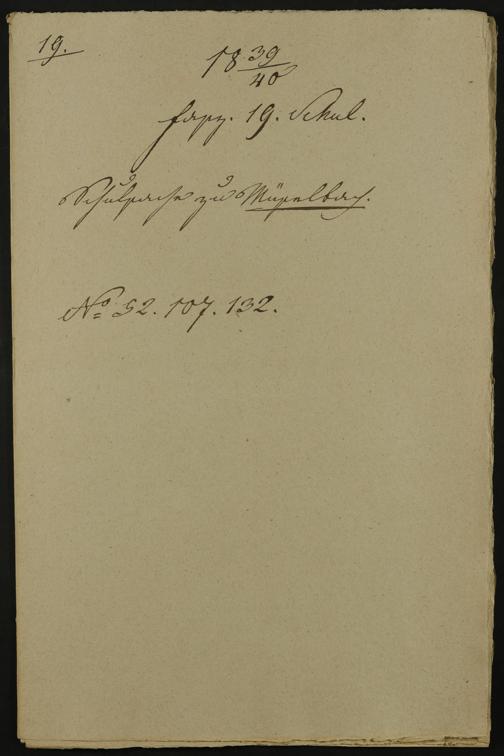 19.
18 39/40
Fasz. 19. Schul.
Schulsache zu Müselbach.
No 52. 107. 132.